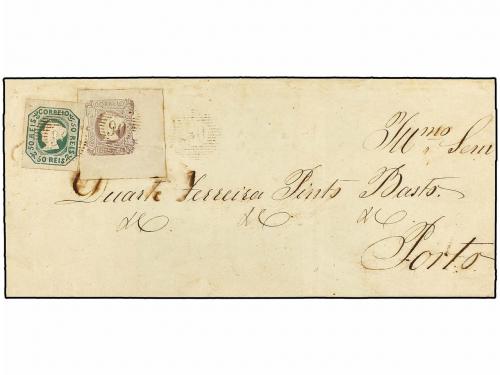 CORREIO
50 REIS 50 REIS
50 REIS
CORREIO
Illmo Senr
Duarte Ferreira Pinto Basto.
&C &C &C
Porto